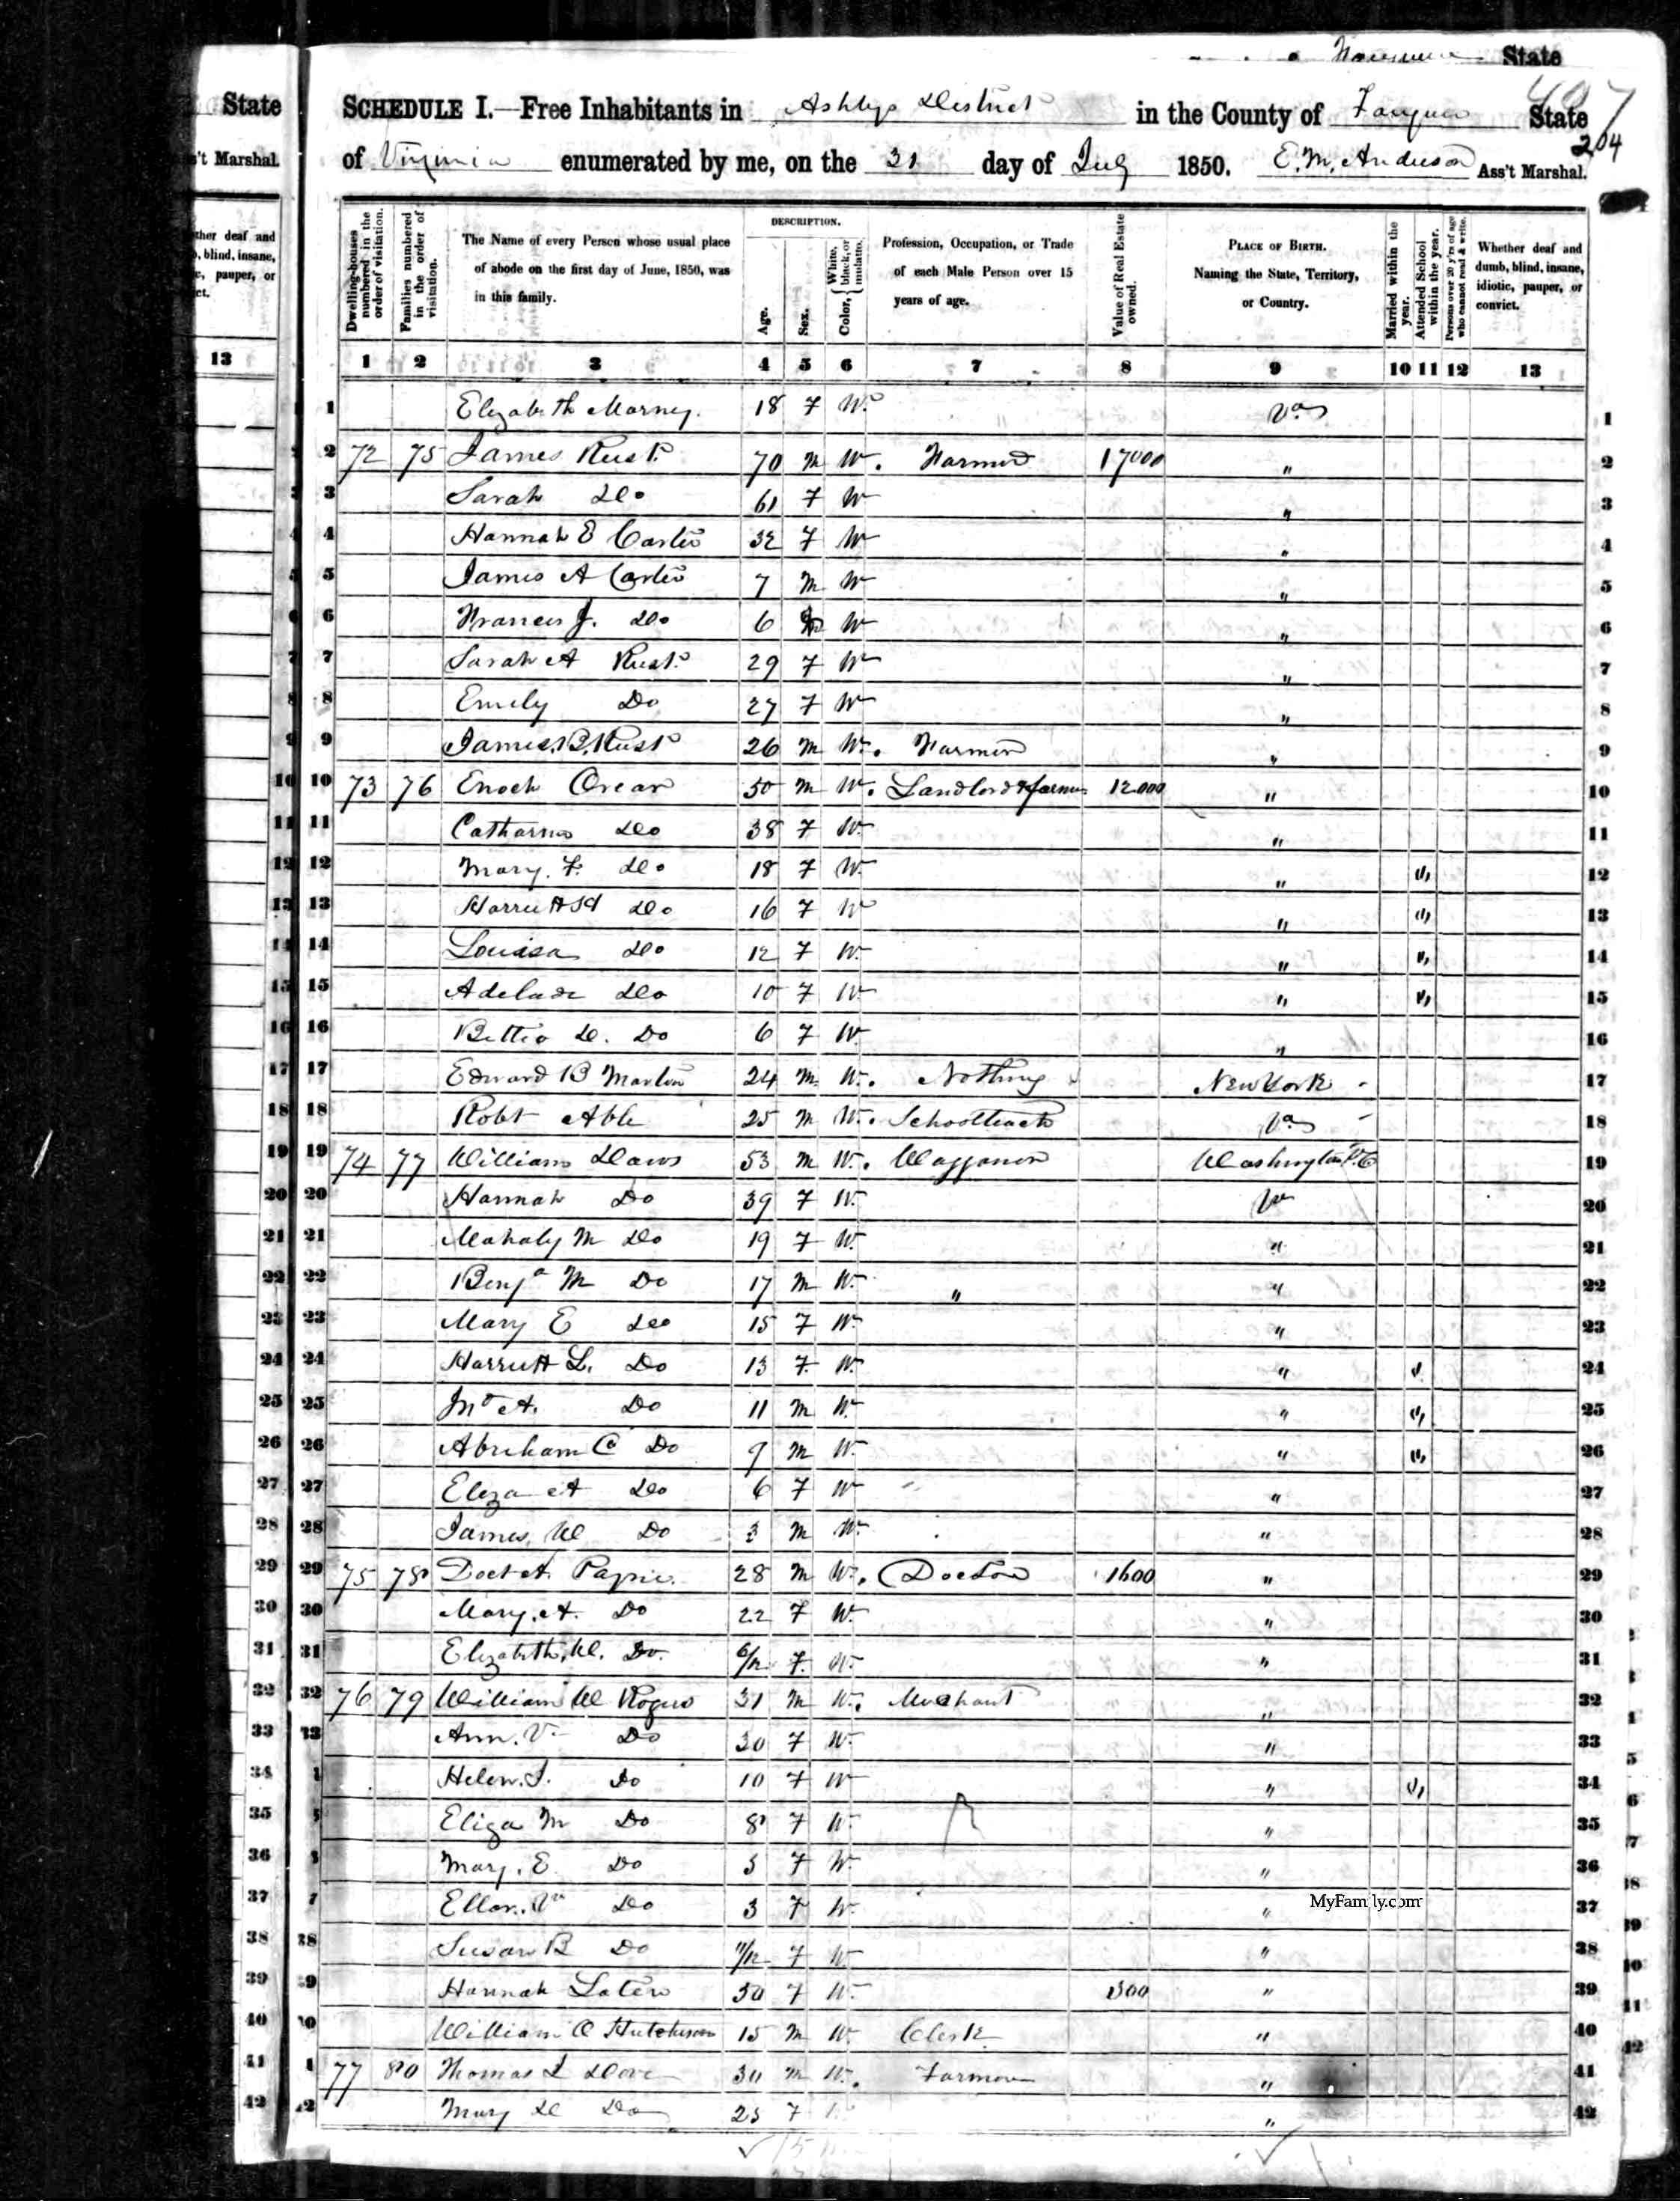 State
SCHEDULE I.—Free Inhabitants in Ashbys District in the County of Fauquier State
of Virginia enumerated by me, on the 31 day of July 1850. E. M. Anderson Ass't Marshal.
407
204
State
't Marshal.
ther deaf and
, blind, insane,
c, pauper, or
ct.
13
Dwelling-houses numbered in the order of visitation.
Families numbered in the order of visitation.
The Name of every Person whose usual place of abode on the first day of June, 1850, was in this family.
DESCRIPTION.
Age.
Sex.
Color, { White, black, or mulatto.
Profession, Occupation, or Trade of each Male Person over 15 years of age.
Value of Real Estate owned.
PLACE OF BIRTH. Naming the State, Territory, or Country.
Married within the year.
Attended School within the year.
Persons over 20 y'rs of age who cannot read & write.
Whether deaf and dumb, blind, insane, idiotic, pauper, or convict.
1 2 3 4 5 6 7 8 9 10 11 12 13
1 Elizabeth 18 F W Va 1
2 72 75 James Rust 70 M W Farmer 17000 " 2
3 Sarah Do 61 F W " 3
4 Hannah E Carter 32 F W " 4
5 James A Carter 7 M W " 5
6 Frances J. Do 6 W " 6
7 Sarah A Rust 29 F W " 7
8 Emily Do 27 F W " 8
9 James B. Rust 26 M W. Farmer " 9
10 73 76 Enoch Orear 50 M W. Landlord & farmer 12.000 " 10
11 Catharine Do 38 F W. " 11
12 Mary. F. Do 18 F W. " " 12
13 Harriett H Do 16 F W " " 13
14 Louisa Do 12 F W. " " 14
15 Adelade Do 10 F W. " " 15
16 Bettie D. Do 6 F W " 16
17 Edward B Martin 24 M. W. Nothing New York 17
18 Robt Able 25 M W. Schoolteach Va 18
19 74 77 William Daws 53 M W. Waggoner Washington D.C 19
20 Hannah Do 39 F W. Va 20
21 Mahaly M Do 19 F W. " 21
22 Benja M Do 17 M W. " " 22
23 Mary E Do 15 F W. " 23
24 Harriett L. Do 13 F. W. " " 24
25 Jno A. Do 11 M W. " " 25
26 Abraham C Do 9 M W. " " 26
27 Eliza A Do 6 F W " 27
28 James, W Do 3 M W. " 28
29 75 78 Doct A. Payne. 28 M W. Doctor 1600 " 29
30 Mary. A. Do 22 F W. " 30
31 Elizabeth, W. Do. 6/12 F. W. " 31
32 76 79 William W Rogers 31 M W. Merchant " 32
33 Ann. V. Do 30 F W. " 33
34 Helen. J. Do 10 F W " " 34
35 Eliza M Do 8 F W. " 35
36 Mary. E. Do 5 F W. " 36
37 Ellen. V Do 3 F W. " 37
38 Susan B Do 11/12 F W " 38
39 Hannah 50 F W. 300 " 39
40 William O Hutchison 15 M W Clerk " 40
41 77 80 Thomas L Dove 30 M W. Farmer " 41
42 Mary Do 25 F " 42
MyFamily.com